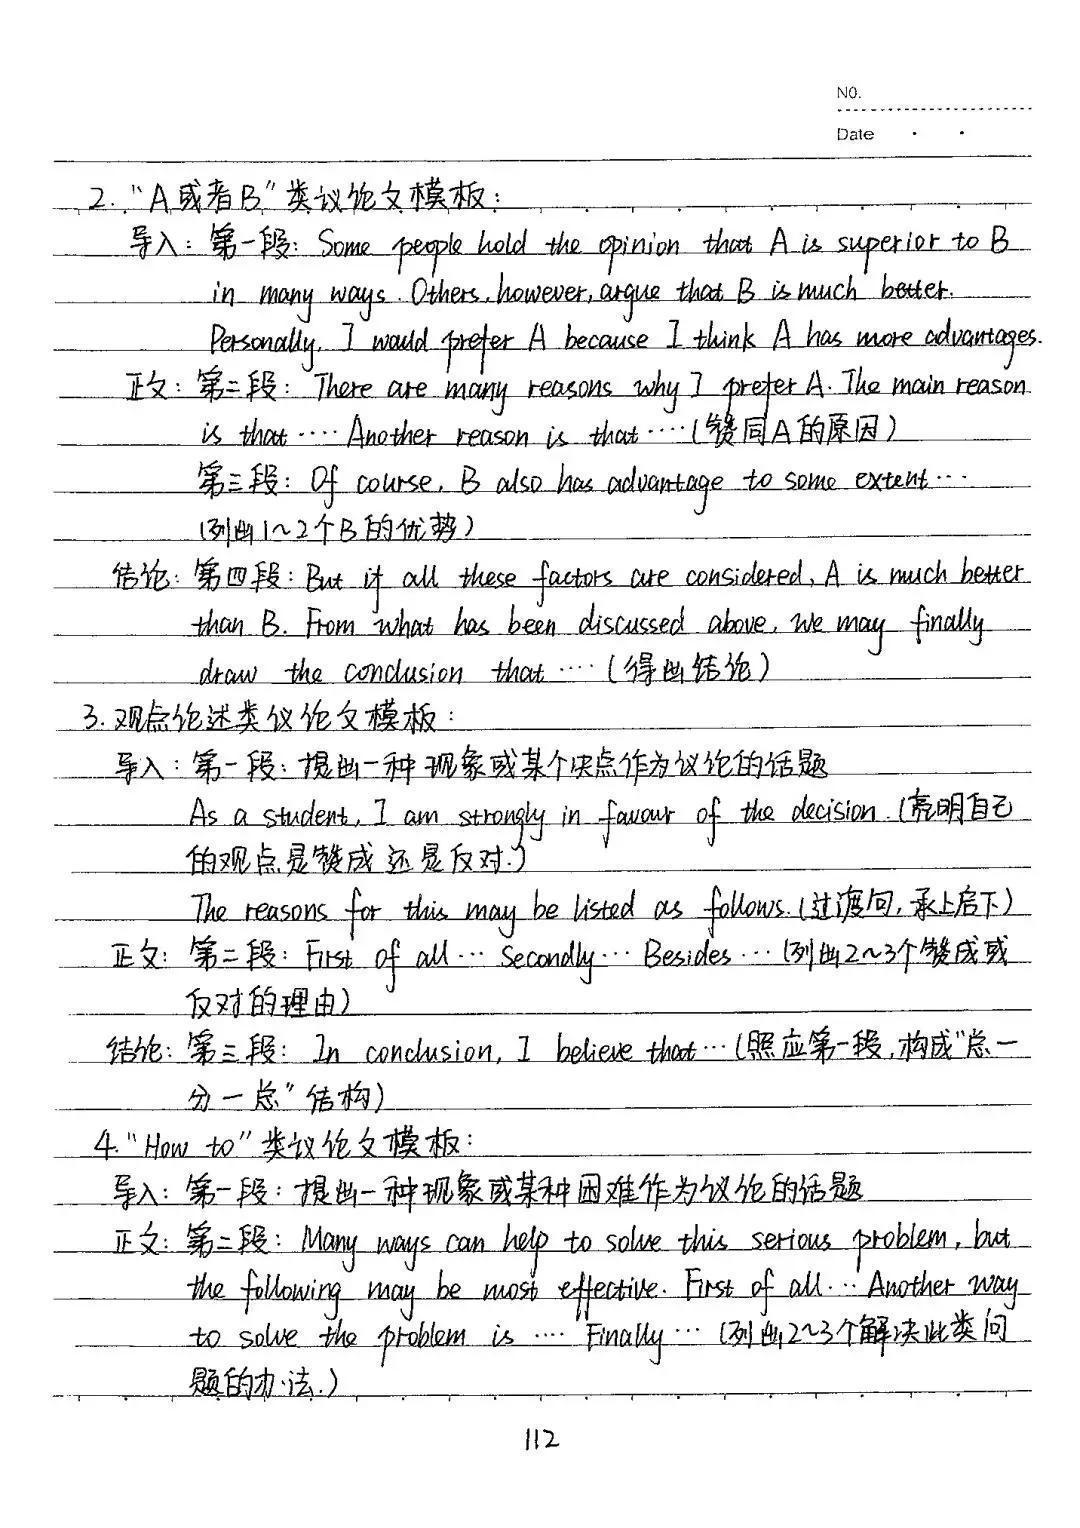 NO.
Date
2."A或者B"类议论文模板:
导入:第一段: Some people hold the opinion that A is superior to B
in many ways. Others, however, argue that B is much better.
Personally, I would prefer A because I think A has more advantages.
正文:第二段: There are many reasons why I prefer A. The main reason
is that ···· Another reason is that ····(赞同A的原因)
第三段: Of course, B also has advantage to some extent ···
(列出1~2个B的优势)
结论:第四段: But if all these factors are considered, A is much better
than B. From what has been discussed above, we may finally
draw the conclusion that ····(得出结论)
3.观点论述类议论文模板:
导入:第一段:提出一种现象或某个决点作为议论的话题
As a student, I am strongly in favour of the decision.(亮明自己
的观点是赞成还是反对.)
The reasons for this may be listed as follows.(过渡句,承上启下)
正文:第二段: First of all ··· Secondly ··· Besides ···(列出2~3个赞成或
反对的理由)
结论:第三段: In conclusion, I believe that ···(照应第一段,构成"总一
分一总"结构)
4."How to"类议论文模板:
导入:第一段:提出一种现象或某种困难作为议论的话题
正文:第二段: Many ways can help to solve this serious problem, but
the following may be most effective. First of all ··· Another way
to solve the problem is ···· Finally ···(列出2~3个解决此类问
题的办法.)
112